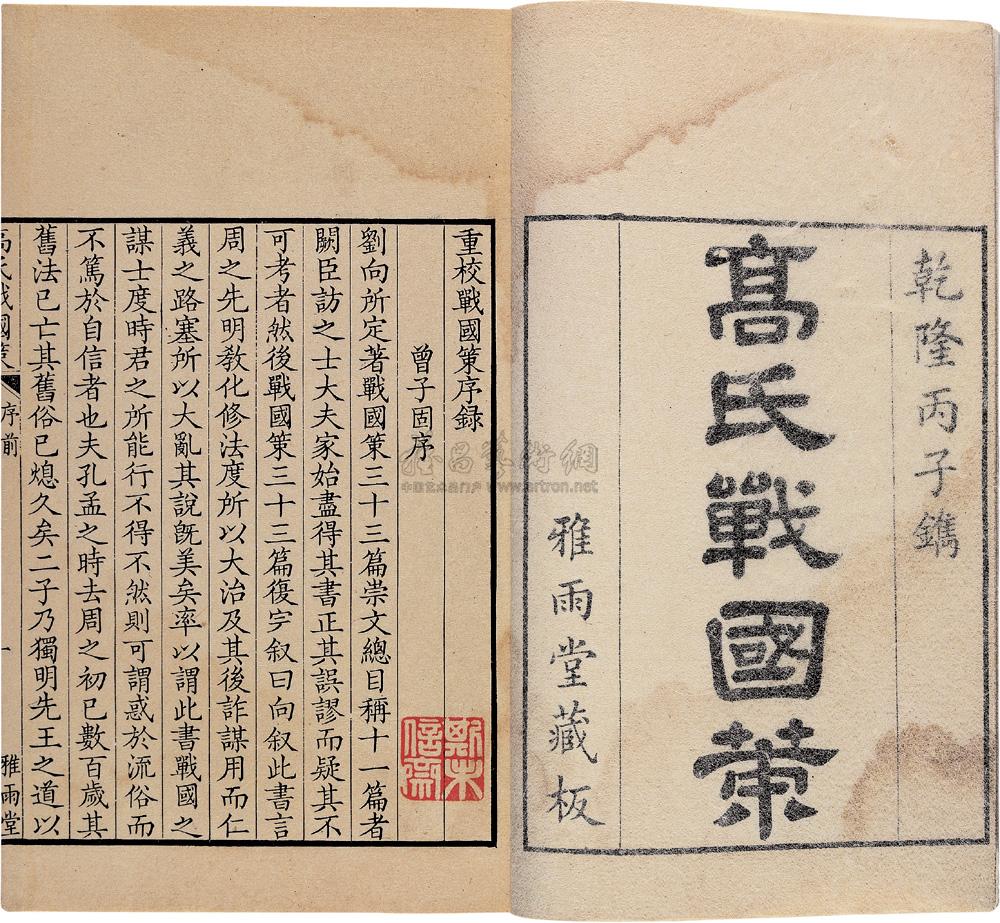 乾隆丙子鐫
高氏戰國策
雅雨堂藏板
重校戰國策序録
曾子固序
劉向所定著戰國策三十三篇崇文總目稱十一篇者
闕臣訪之士大夫家始盡得其書正其誤謬而疑其不
可考者然後戰國策三十三篇復完叙曰向叙此書言
周之先明敎化修法度所以大治及其後詐謀用而仁
義之路塞所以大亂其說旣美矣率以謂此書戰國之
謀士度時君之所能行不得不然則可謂惑於流俗而
不篤於自信者也夫孔孟之時去周之初已數百歲其
舊法已亡其舊俗已熄久矣二子乃獨明先王之道以
高氏戰國策
序前
一
雅雨堂
雅昌藝術網
中国艺术品门户 www.artron.net